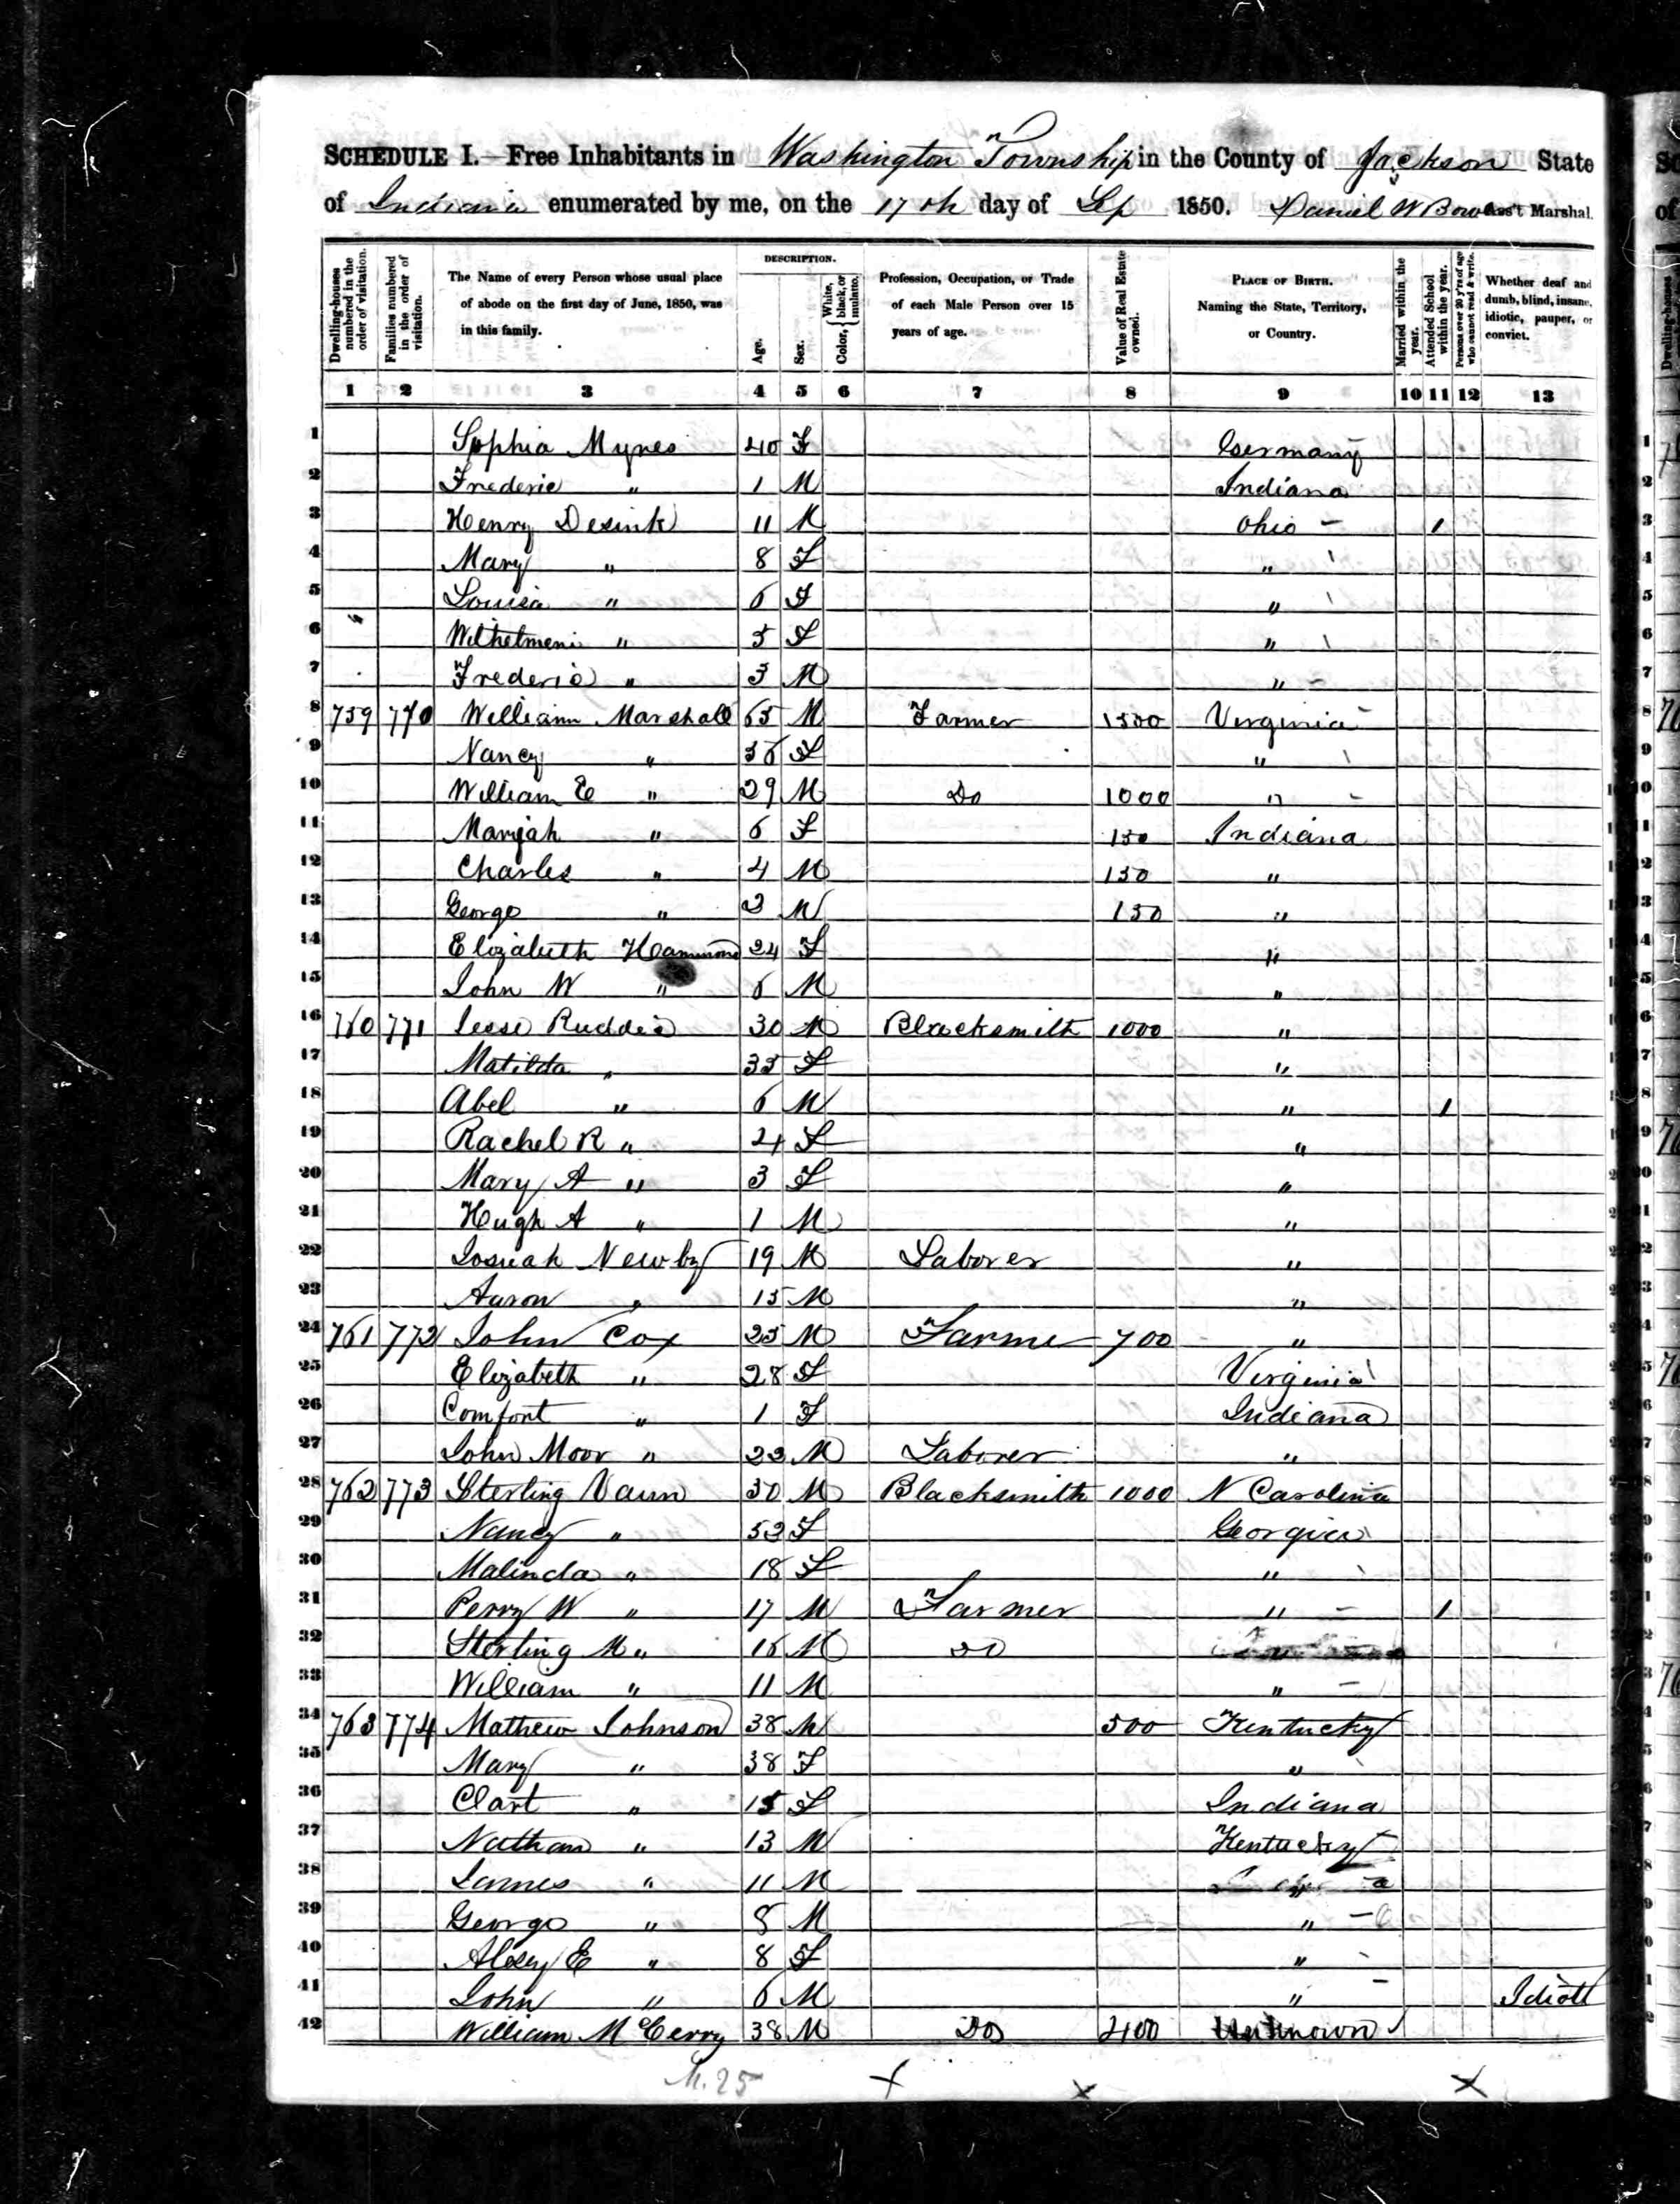 SCHEDULE I.—Free Inhabitants in Washington Township in the County of Jackson State
of Indiana enumerated by me, on the 17th day of Sep 1850. Daniel W Bow Ass't Marshal.
Dwelling-houses numbered in the order of visitation. Families numbered in the order of visitation. The Name of every Person whose usual place of abode on the first day of June, 1850, was in this family. DESCRIPTION. Age. Sex. Color, { White, black, or mulatto. Profession, Occupation, or Trade of each Male Person over 15 years of age. Value of Real Estate owned. PLACE OF BIRTH. Naming the State, Territory, or Country. Married within the year. Attended School within the year. Persons over 20 y'rs of age who cannot read & write. Whether deaf and dumb, blind, insane, idiotic, pauper, or convict.
1 2 3 4 5 6 7 8 9 10 11 12 13
1 Sophia Mynes 40 F Germany
2 Frederic " 1 M Indiana
3 Henry Desink 11 M Ohio 1
4 Mary " 8 F "
5 Louisa " 6 F "
6 Wilhelmeni " 5 F "
7 Frederic " 3 M "
8 759 770 William Marshall 65 M Farmer 1500 Virginia
9 Nancy " 56 F "
10 William E " 29 M Do 1000 "
11 Marijah " 6 F 150 Indiana
12 Charles " 4 M 150 "
13 George " 2 M 150 "
14 Elizabeth Hammond 24 F "
15 John W " 6 M "
16 760 771 Jesse Ruddic 30 M Blacksmith 1000 "
17 Matilda " 35 F "
18 Abel " 6 M " 1
19 Rachel R " 4 F "
20 Mary A " 3 F "
21 Hugh A " 1 M "
22 Josieah Newby 19 M Laborer "
23 Aaron " 15 M "
24 761 772 John Cox 25 M Farme 700 "
25 Elizabeth " 28 F Virginia
26 Comfort " 1 F Indiana
27 John Moor " 23 M Laborer "
28 762 773 Sterling Vaun 50 M Blacksmith 1000 N Carolina
29 Nancy " 52 F Georgia
30 Malinda " 18 F "
31 Perry W " 17 M Farmer " 1
32 Sterling M " 16 M Do
33 William " 11 M "
34 763 774 Mathew Johnson 38 M 500 Kentucky
35 Mary " 38 F "
36 Clart " 15 F Indiana
37 Nathan " 13 M Kentucky
38 James " 11 M "
39 George " 8 M "
40 Alsey E " 8 F "
41 John " 6 M " Idiott
42 William McCerry 38 M Do 400 Unknown
M. 25